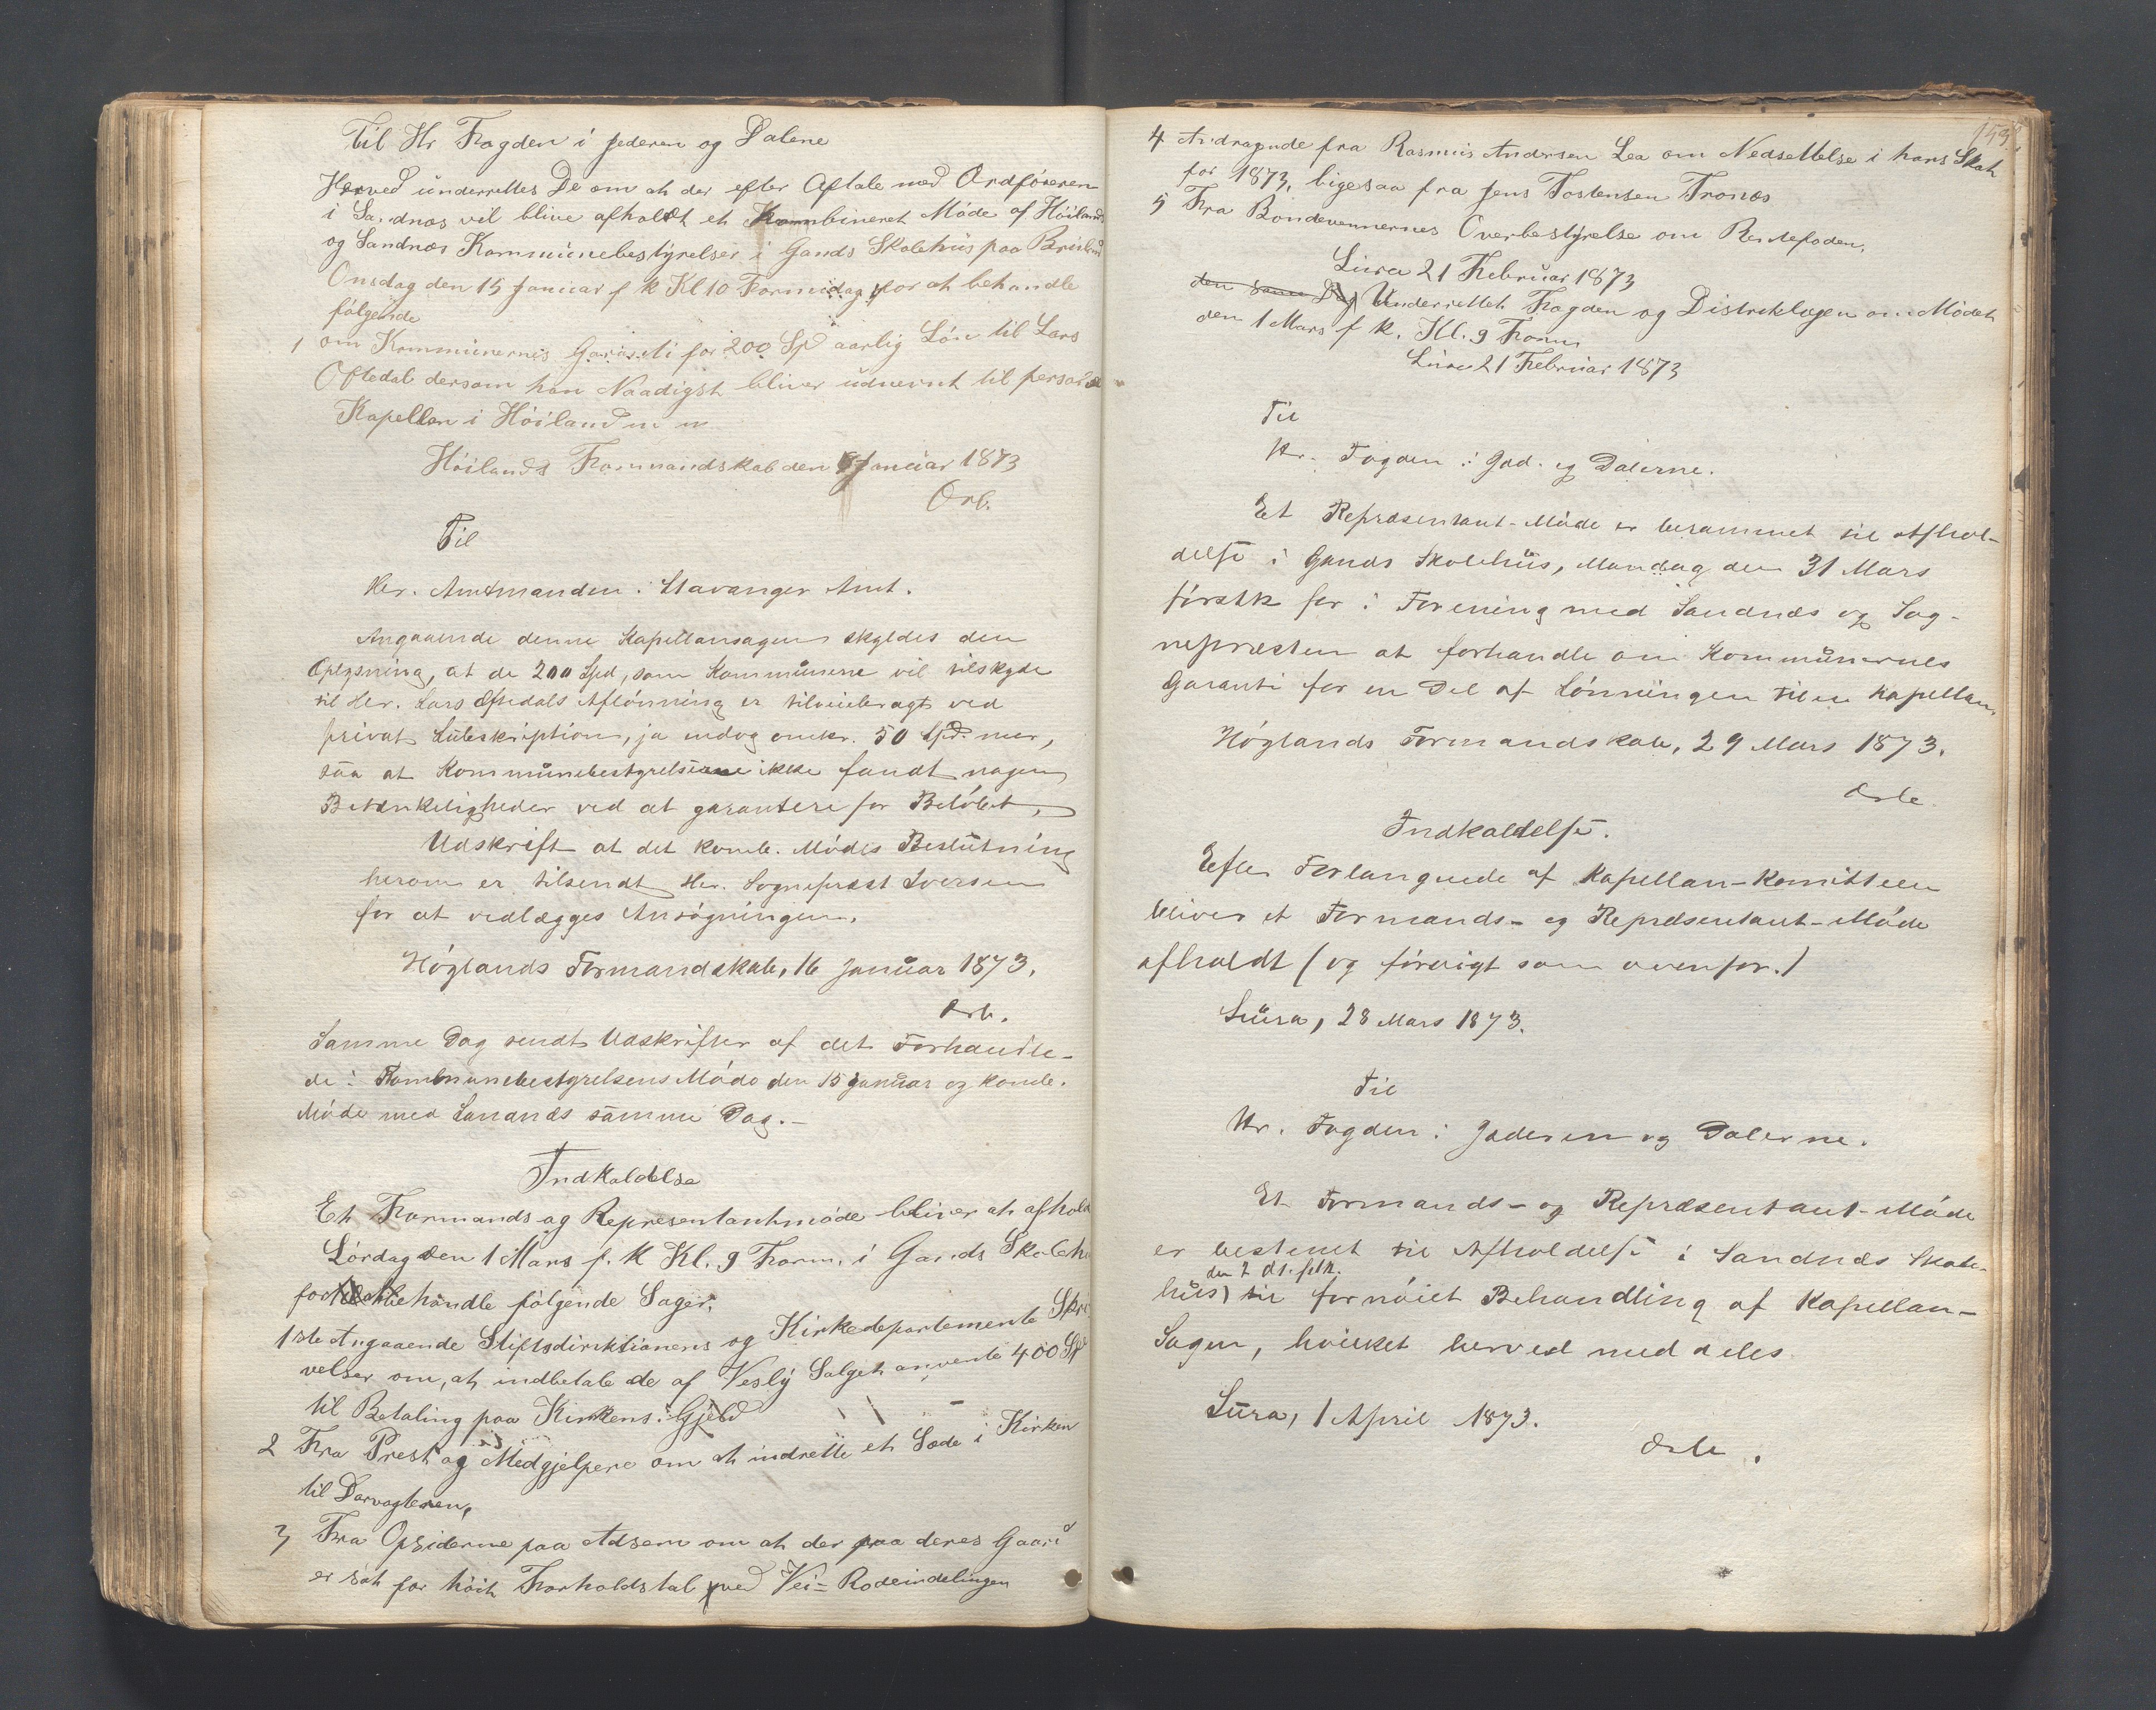 Til Hr Fogden i Jederen og Dalene
Herved underrettes De om at der efter Aftale med Ordføreren
i Sandnæs vil blive afholdt et Kombineret Møde af Höilands
og Sandnæs Kommunebestyrelser i Gands Skolehus paa
Onsdag den 15 Januar f k Kl 10 Formidag for at behandle
følgende
1 om Kommunernis Garanti for 200 Sp aarlig Løn til Lars
Oftedal dersom han Naadigst bliver udnevnt til personel
Kapellan i Höiland m m
Höilands Formandskab den Januar 1873
Orb.
Til
Hr. Amtmanden i Stavanger Amt.
Angaaende denne Kapellansagen skyldes den
Oplysning, at de 200 Spd, som Kommunerne vil tilskyde
til Hr. Lars Oftedals Aflønning er tilveiebragt ved
privat Subskription, ja endog omkr. 50 Spd. mer,
saa at Kommunebestyrelserne ikke fandt nogen
Betænkeligheder ved at garantere for Beløbet.
Udskrift af det komb. Mødes Beslutning
herom er tilsendt Hr. Sogneprest Iversen
for at vedlægges Ansøgningen.
Höglands Formandskab, 16 Januar 1873.
Orb.
Samme Dag sendt Udskrifter af det Forhandle-
de i Kommunebestyrelsens Møde den 15 Januar og komb.
Møde med Sandnæs samme Dag.-
Indkaldelse
Et Formands og Representantmøde bliver at afhold
Lørdag den 1 Mars f. k Kl. 9 Form. i Gands Skoleh
for at behandle følgende Sager,
1ste Angaaende Stiftsdirektionens og Kirkedepartemente Skri
velser om, at indbetale de af Salget 400 Sp
til Betaling paa Kirkens Gjeld
2 Fra Prest og Medgjelpere om at indrette et Sæde i Kirken
til Dørvogteren,
3 Fra Opsiderne paa Adsem om at der paa deres Gaard
er sat for höit Forholdstal ved Vei= Rodeindelingen
153
4 Andragende fra Rasmus Andersen Lea om Nedsettelse i hans Skat
for 1873, ligesaa fra Jens Tostensen Tronæs
5 Fra Bondevennernes Overbestyrelse om Rentefoden,
Lura 21 Februar 1873
den same Dag Underrettet Fogden og Distriktlægen om Mødet
den 1 Mars f k. Kl. 9 Form
Lura 21 Februar 1873
Til
Hr. Fogden i Jæd. og Dalerne.
Et Repræsentant-Møde er berammet til Afhol-
delse i Gands Skolehus, Mandag den 31 Mars
førstk for i Forening med Sandnæs og Sog-
nepræsten at forhandle om Kommunernes
Garanti for en Del af Lønningen til en Kapellan.
Höglands Formandskab, 29 Mars 1873.
Orb.
Indkaldelse.
Efter Forlangende af Kapellan-Komitteen
bliver et Formands- og Repræsentant-Møde
afholdt (og førvigt som ovenfor.)
Lura, 28 Mars 1873.
Til
Hr. Fogden i Jæderen og Dalerne.
Et Formands- og Repræsentant-Møde
er bestemt til Afholdelse i Sandnæs Skole-
den 2 ds.
hus) til fornöiet Behandling af Kapellan-
Sagen, hvilket herved meddeles.
Lura, 1 April 1873.
Orb.